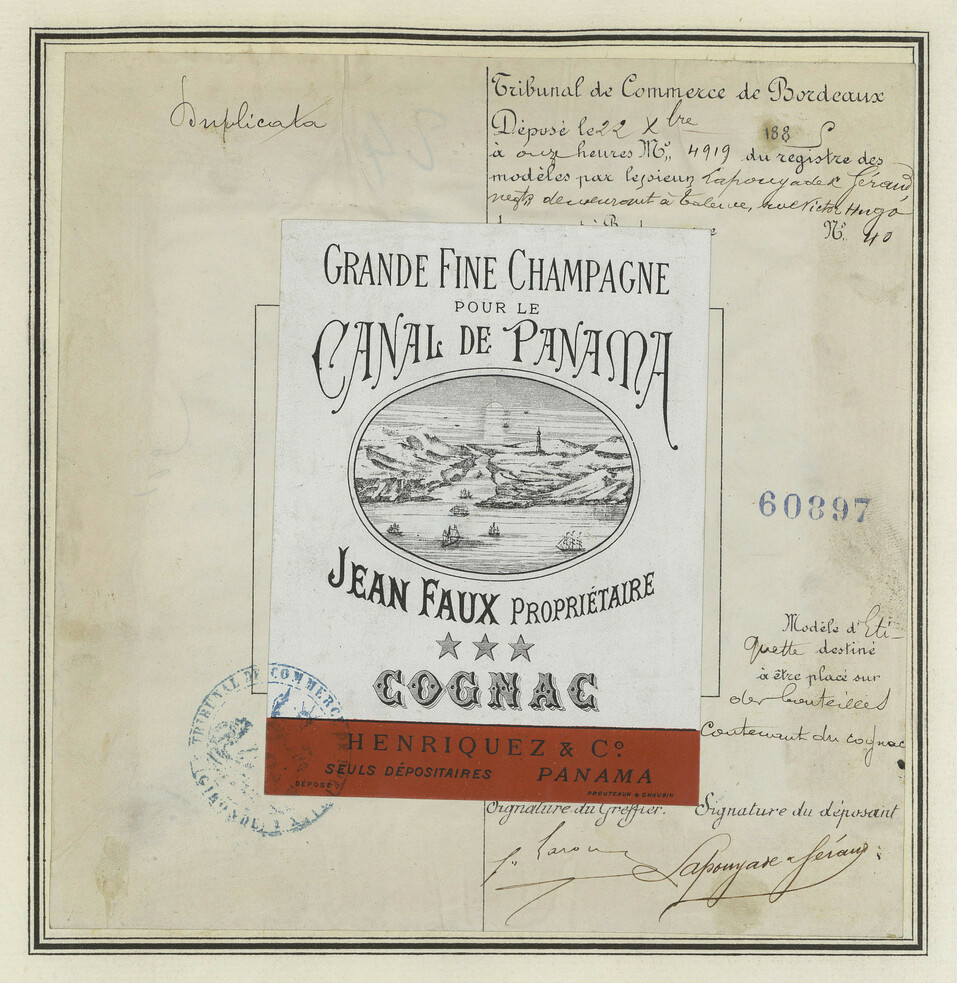 Duplicata
Tribunal de Commerce de Bordeaux
Déposé le 22 Xbre 188
à onze heures Nº 4919 du registre des
modèles par le sieur Lapouyade & Férand
negts demeurant à Talence, rue Victor Hugo
Nº 40
GRANDE FINE CHAMPAGNE
POUR LE
CANAL DE PANAMA
JEAN FAUX PROPRIÉTAIRE
COGNAC
HENRIQUEZ & Cº
SEULS DÉPOSITAIRES PANAMA
DÉPOSÉ
60897
Modèle d'Eti-
quette destiné
à être placé sur
des bouteilles
Contenant du cognac
TRIBUNAL DE COMMERCE
(GIRONDE)
Signature du Greffier. Signature du déposant
Lapouyade & Férand